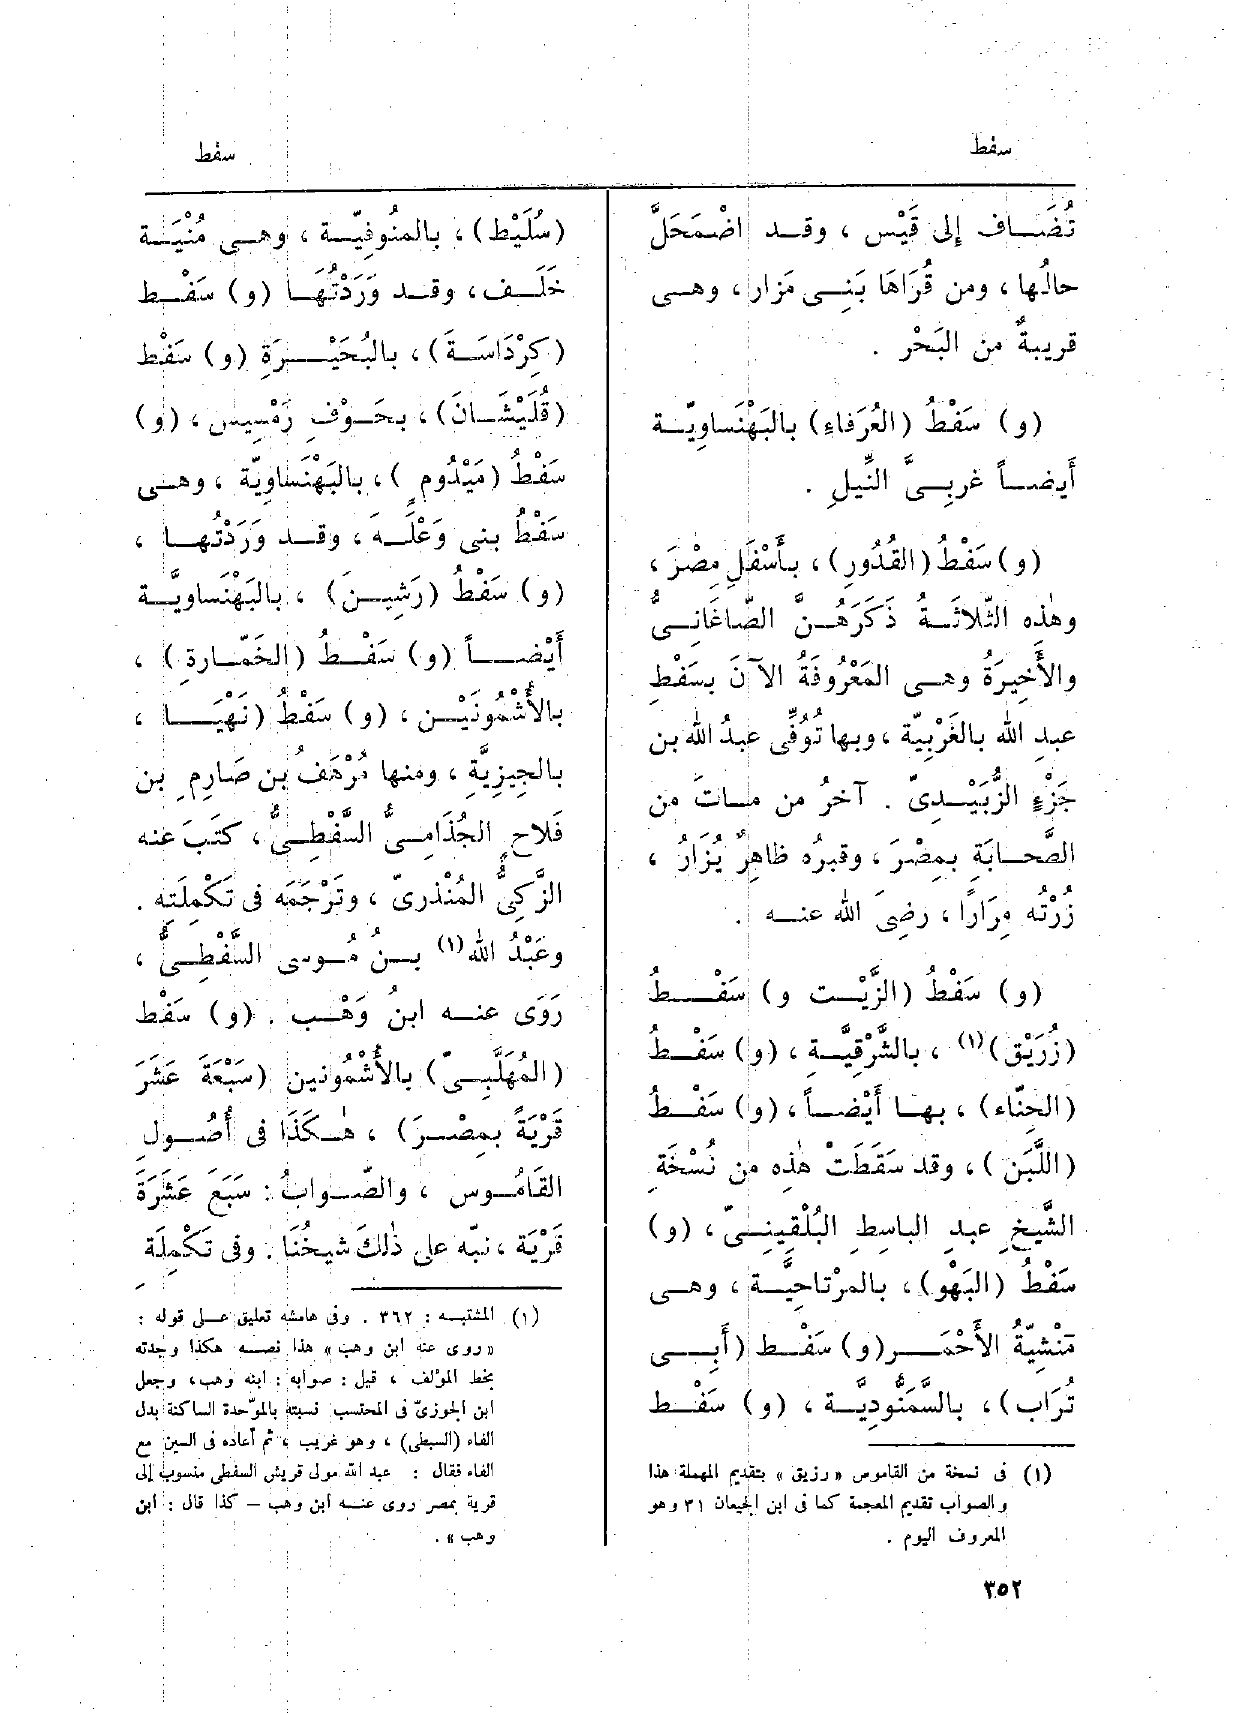 سفط
سفط
تُضَاف إلى قَيْس ، وقد اضْمَحَلَّ
حالُها ، ومن قُرَاهَا بَنِى مَزار ، وهى
قريبةٌ من البَحْر .
(و) سَفْطُ (العُرَفاءِ) بالبَهْنَساوِيّة
أيضاً غربِىَّ النِّيلِ .
(و) سَفْطُ (القُدُورِ) ، بأَسْفَلِ مِصْرَ ،
وهٰذه الثّلاثَةُ ذَكَرَهُنَّ الصّاغَانِىُّ
والأَخِيرَةُ وهى المَعْرُوفَةُ الآنَ بسَفْطِ
عبدِ الله بالغَرْبِيّة ، وبها تُوُفِّى عبدُ الله بن
جَزْءٍ الزُّبَيْدِىّ . آخرُ من ماتَ من
الصَّحابَةِ بمِصْرَ ، وقبرُه ظاهِرٌ يُزَارُ ،
زُرْتُه مِرَارًا ، رضِىَ الله عنه .
(و) سَفْطُ (الزَّيْت و) سَفْطُ
(زُرَيْق)(١) ، بالشَّرْقِيَّة ، (و) سَفْطُ
(الحِنّاء) ، بها أَيْضاً ، (و) سَفْطُ
(اللَّبَن) ، وقد سَقَطَتْ هٰذه من نُسْخَةِ
الشَّيْخِ عبدِ الباسِطِ البُلْقِينِىّ ، (و)
سَفْطُ (البَهْو) ، بالمرْتاحِيَّة ، وهى
مَنْشِيّةُ الأَحْمَر (و) سَفْط (أَبِى
تُرَاب) ، بالسَّمَنُّودِيَّة ، (و) سَفْط
(١) فى نسخة من القاموس « رزيق » بتقديم المهملة هذا
والصواب تقديم المعجمة كما فى ابن الجيعان ٣١ وهو
المعروف اليوم .
(سُلَيْط) ، بالمنُوفِيّة ، وهى مُنْيَة
خَلَف ، وقد وَرَدْتُهَا (و) سَفْط
(كِرْدَاسَةَ) ، بالبُحَيْرَةِ (و) سَفْط
(قُلَيْشَانَ) ، بحَوْفِ رَمْسِيس ، (و)
سَفْطُ (مَيْدُومٍ) ، بالبَهْنَساوِيّة ، وهى
سَفْطُ بنى وَعْلَة ، وقد وَرَدْتُها ،
(و) سَفْطُ (رَشِينَ) ، بالبَهْنَساوِيَّة
أَيْضاً (و) سَفْطُ (الخَمّارةِ) ،
بالأُشْمُونَيْن ، (و) سَفْطُ (نَهْيَا ،
بالجِيزِيَّةِ ، ومنها مُرْهَفُ بن صَارِمِ بن
فَلاحٍ الجُذَامِىُّ السَّفْطِىُّ ، كتَبَ عنه
الزَّكِىُّ المُنْذرىّ ، وتَرْجَمَه فى تَكْمِلَتِه .
وعَبْدُ الله(١) بنُ مُوسى السَّفْطِىُّ ،
رَوَى عنه ابنُ وَهْب . (و) سَفْط
(المُهَلَّبِىّ) بالأُشْمُونين (سَبْعَةَ عَشَرَ
قَرْيَةً بمِصْرَ) ، هٰكَذَا فى أُصُولِ
القَامُوس ، والصّوابُ : سَبَع عَشَرَةَ
قَرْيَة ، نبّه على ذٰلكَ شيخُنَا . وفى تَكْمِلَة
(١) المشتبه : ٣٦٢ . وفى هامشه تعليق على قوله :
« روى عنه ابن وهب » هذا نصه هكذا وجدته
بخط المؤلف ، قيل : صوابه : ابنه وهب ، وجعل
ابن الجوزىّ فى المحتسب نسبته بالموّحدة الساكنة بدل
الفاء (السبطى) ، وهو غريب ، ثم أعاده فى السين مع
الفاء فقال : عبد الله مولى قريش السفطى منسوب إلى
قرية بمصر روى عنه ابن وهب – كذا قال : ابن
وهب » .
٣٥٢